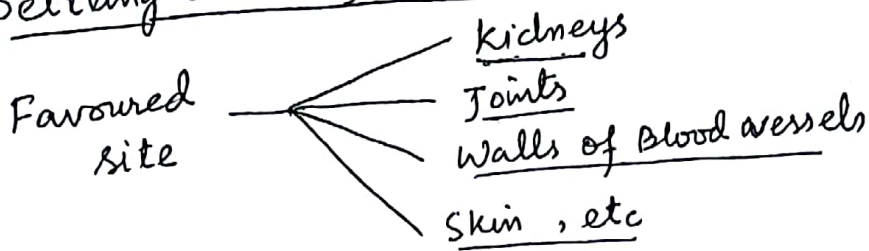 Favoured
site
Kidneys
Joints
Walls of Blood vessels
Skin, etc